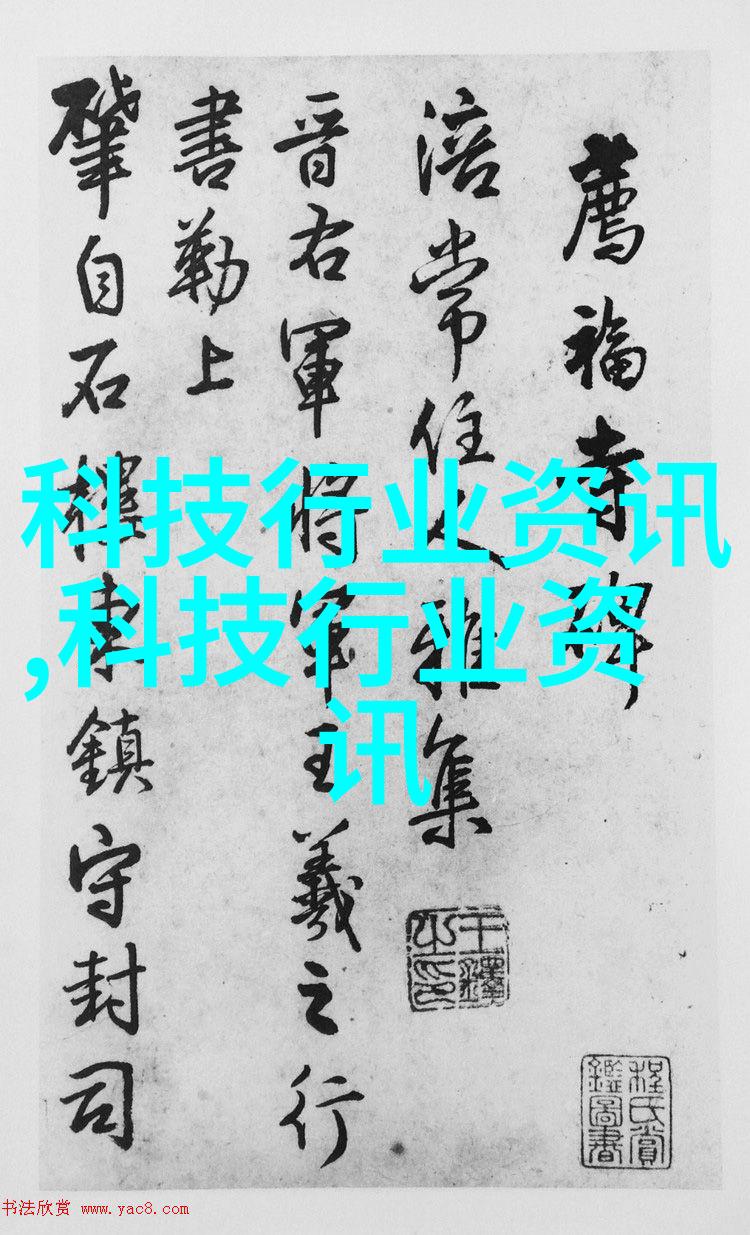 薦福寺碑
涪常住人雅集
晋右軍將軍王羲之行
書勒上
肇自石鎮守封司
科技行业资讯
,科技行业资
讯
程氏賞
鑑圖書
书法欣赏 www.yac8.com